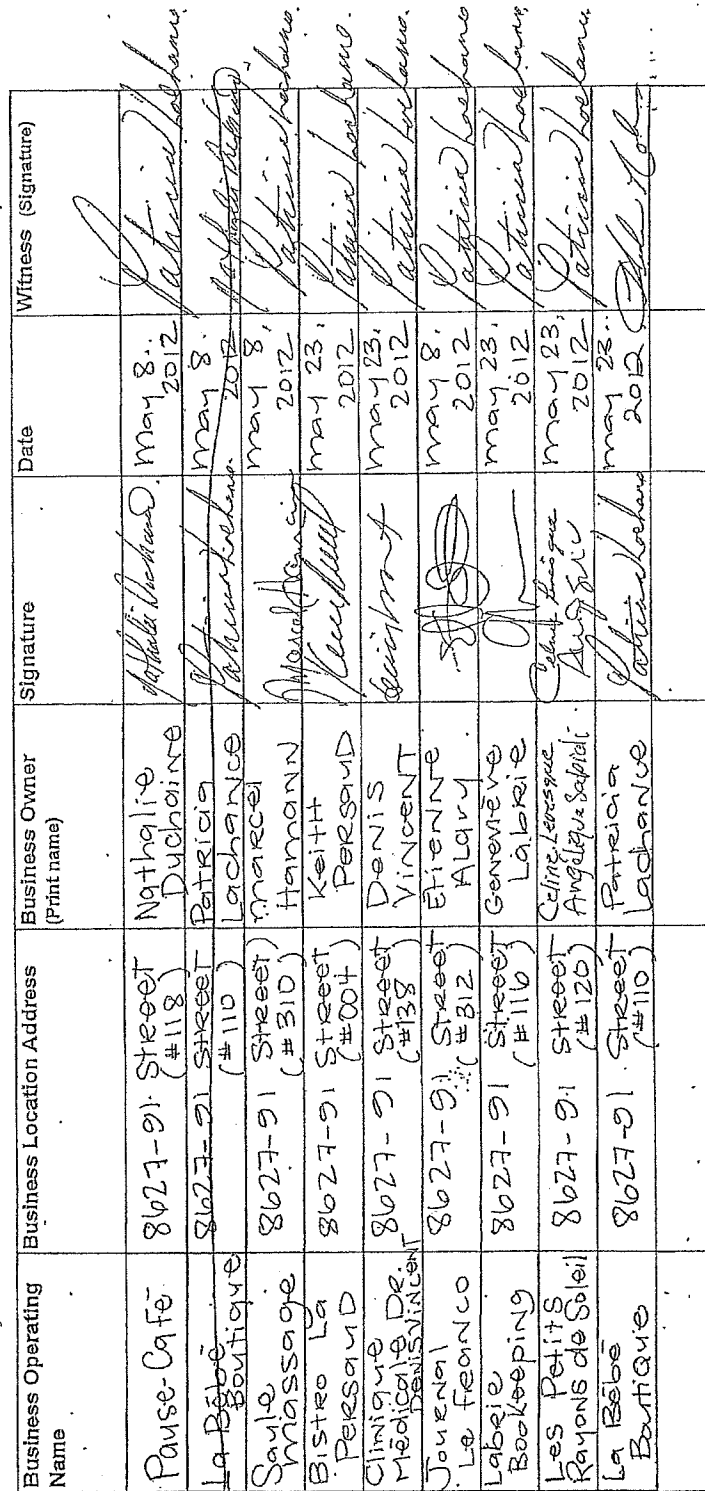 Business Operating Name
Business Location Address
Business Owner (Print name)
Signature
Date
Witness (Signature)
Pause-Café
8627-91. Street (#118)
Nathalie Duchaine
Nathalie Duchaine
may 8. 2012
Patricia Lachance
La Bébé Boutique
8627-91 Street (#110)
Patricia Lachance
Patricia Lachance
may 8. 2012
Nathalie Duchaine
Saule Massage
8627-91 Street (#310)
Marcel Hamann
Marcel Hamann
may 8, 2012
Patricia Lachance
Bistro La Persaud
8627-91 Street (#004)
Keith Persaud
may 23, 2012
Patricia Lachance.
Clinique Médicale Dr. Denis Vincent
8627-91 Street (#138)
Denis Vincent
Denis Vincent
may 23, 2012
Patricia Lachance
Journal Le Franco
8627-91 Street (#312)
Etienne Alary
may 8. 2012
Patricia Lachance
Labrie Bookeeping
8627-91 Street (#116)
Geneviève Labrie
may 23, 2012
Patricia Lachance
Les Petits Rayons de Soleil
8627-91 Street (#120)
Celine Levesque
Angélique Sapidi
Celine Levesque
may 23, 2012
Patricia Lachance
La Bébé Boutique
8627-91 Street (#110)
Patricia Lachance
Patricia Lachance
may 23. 2012